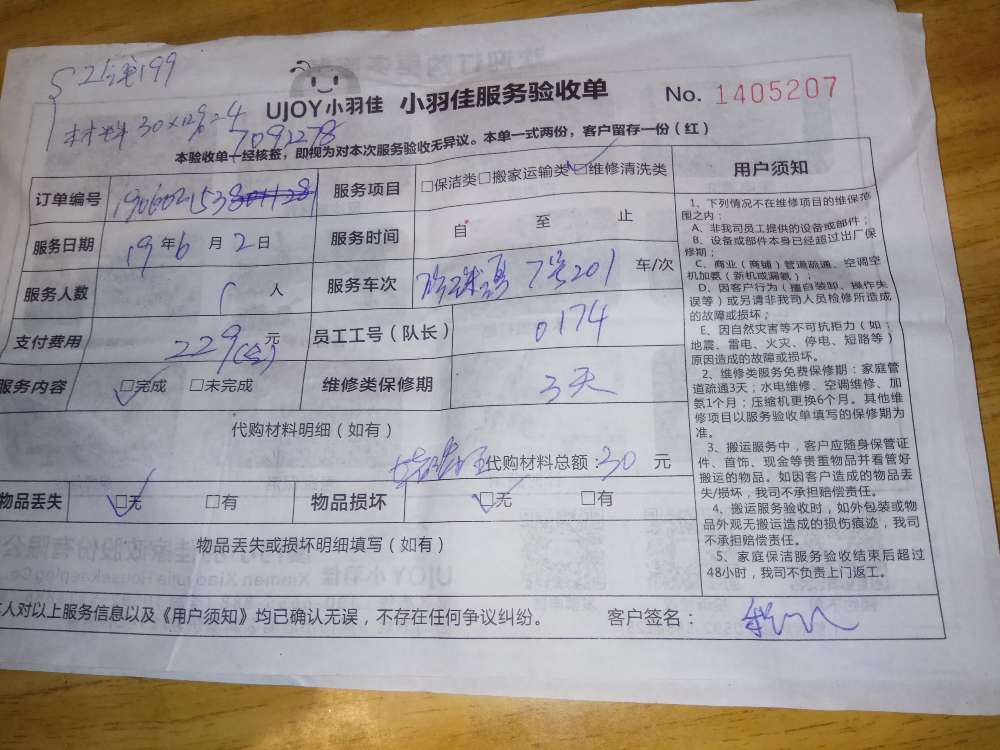 工199
材料30×12%=4
UJOY小羽佳 小羽佳服务验收单 No. 1405207
7091278
本验收单一经核签，即视为对本次服务验收无异议。本单一式两份，客户留存一份（红）
订单编号 190602153801128 服务项目 □保洁类□搬家运输类□维修清洗类
服务日期 19年6月2日 服务时间 自 至 止
服务人数 1 人 服务车次 7号201 车/次
支付费用 229 元 员工工号（队长） 0174
服务内容 □完成 □未完成 维修类保修期 3天
代购材料明细（如有）
代购材料总额：30 元
物品丢失 □无 □有 物品损坏 □无 □有
物品丢失或损坏明细填写（如有）
人对以上服务信息以及《用户须知》均已确认无误，不存在任何争议纠纷。 客户签名：
用户须知
1、下列情况不在维修项目的维保范
围之内：
A、非我司员工提供的设备或部件；
B、设备或部件本身已经超过出厂保
修期；
C、商业（商铺）管道疏通、空调空
机加氨（新机或漏氨）；
D、因客户行为（擅自装卸、操作失
误等）或另请非我司人员检修所造成
的故障或损坏；
E、因自然灾害等不可抗拒力（如：
地震、雷电、火灾、停电、短路等）
原因造成的故障或损坏。
2、维修类服务免费保修期：家庭管
道疏通3天；水电维修、空调维修、加
氨1个月；压缩机更换6个月。其他维
修项目以服务验收单填写的保修期为
准。
3、搬运服务中，客户应随身保管证
件、首饰、现金等贵重物品并看管好
搬运的物品。如因客户造成的物品丢
失/损坏，我司不承担赔偿责任。
4、搬运服务验收时，如外包装或物
品外观无搬运造成的损伤痕迹，我司
不承担赔偿责任。
5、家庭保洁服务验收结束后超过
48小时，我司不负责上门返工。